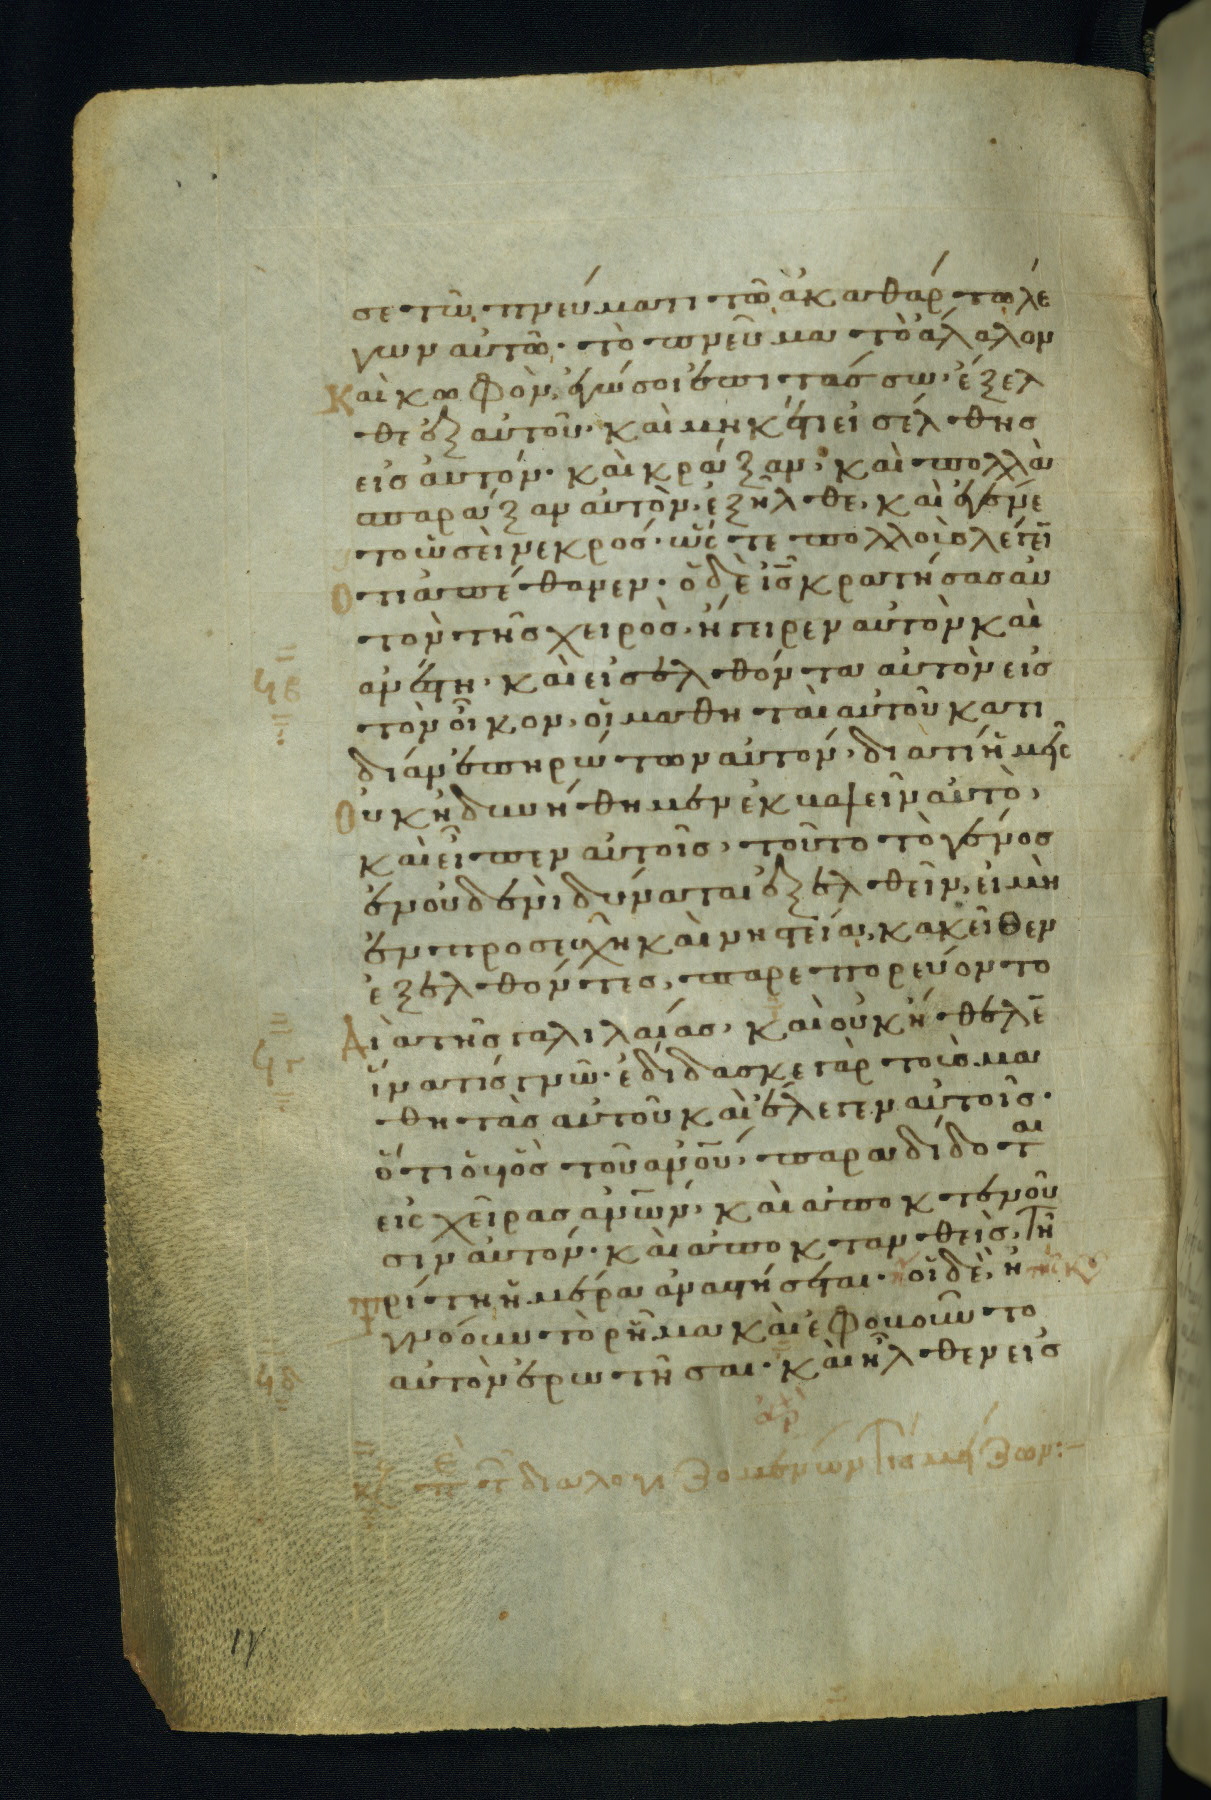 σε τῶ πνεύματι τῶ ἀκαθάρτω λέ
γων αὐτῶ· τὸ πνεῦμα τὸ ἄλαλον
Καὶ κωφὸν, ἐγώ σοι ἐπιτάσσω, ἔξελ
θε ἐξ αὐτοῦ· καὶ μηκέτι εἰσέλθης
εἰς αὐτόν· καὶ κράξαν, καὶ πολλὰ
σπαράξαν αὐτὸν, ἐξῆλθε, καὶ ἐγένε
το ὡσεὶ νεκρός· ὥστε πολλοὺς λέγειν
Ὅτι ἀπέθανεν· ὁ δὲ ἰς κρατήσας αὐ
τὸν τῆς χειρὸς, ἤγειρεν αὐτὸν καὶ
ἀνέστη· καὶ εἰσελθόντα αὐτὸν εἰς
τὸν οἶκον, οἱ μαθηταὶ αὐτοῦ κατι
δίαν ἐπηρώτων αὐτόν, διατί ἡμεῖς
Οὐκ ἠδυνήθημεν ἐκβαλεῖν αὐτὸ,
καὶ εἶπεν αὐτοῖς, τοῦτο τὸ γένος
ἐν οὐδενὶ δύναται ἐξελθεῖν, εἰ μὴ
ἐν προσευχῆ καὶ νηστεία, κακεῖθεν
ἐξελθόντες, παρεπορεύοντο
Διὰ τῆς γαλιλαίας, καὶ οὐκ ἤθελεν
ἵνα τίς γνῶ· ἐδίδασκε γὰρ τοὺς μα
θητὰς αὐτοῦ καὶ ἔλεγεν αὐτοῖς·
ὅτι ὁ υἱὸς τοῦ ἀνου, παραδίδοται
εἰς χεῖρας ἀνων, καὶ ἀποκτενοῦ
σιν αὐτόν· καὶ ἀποκτανθεὶς, τῆ
τρίτη ἡμέρα ἀναστήσεται· οἱ δὲ, ἠ
γνόουν τὸ ρῆμα καὶ ἐφοβοῦντο
αὐτὸν ἐρωτῆσαι· καὶ ἦλθεν εἰς
ἀρ
κζ περὶ τῶν διαλογιζομένων τίς μείζων:–